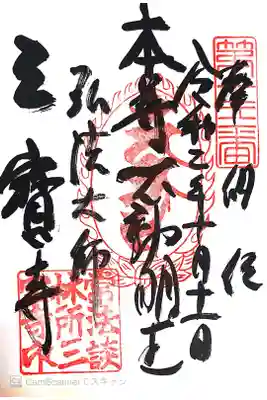 第十六番
奉
令和二年十月十一日
本尊不動明王
弘法大師
三寶寺
CamScanner でスキャン